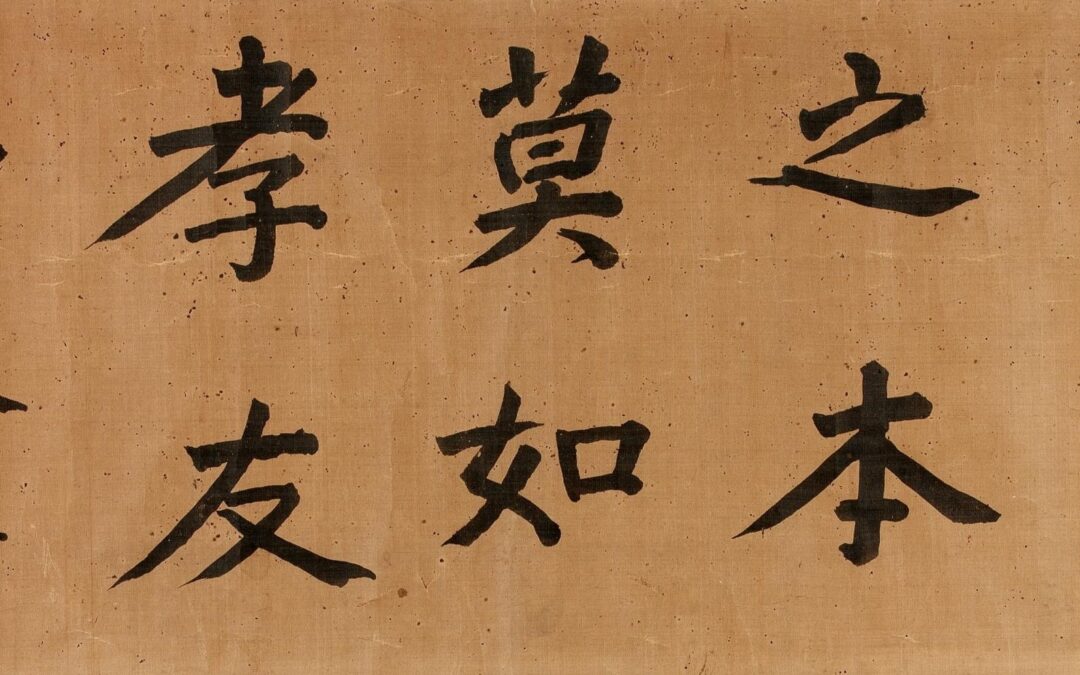 之本
莫如
孝友